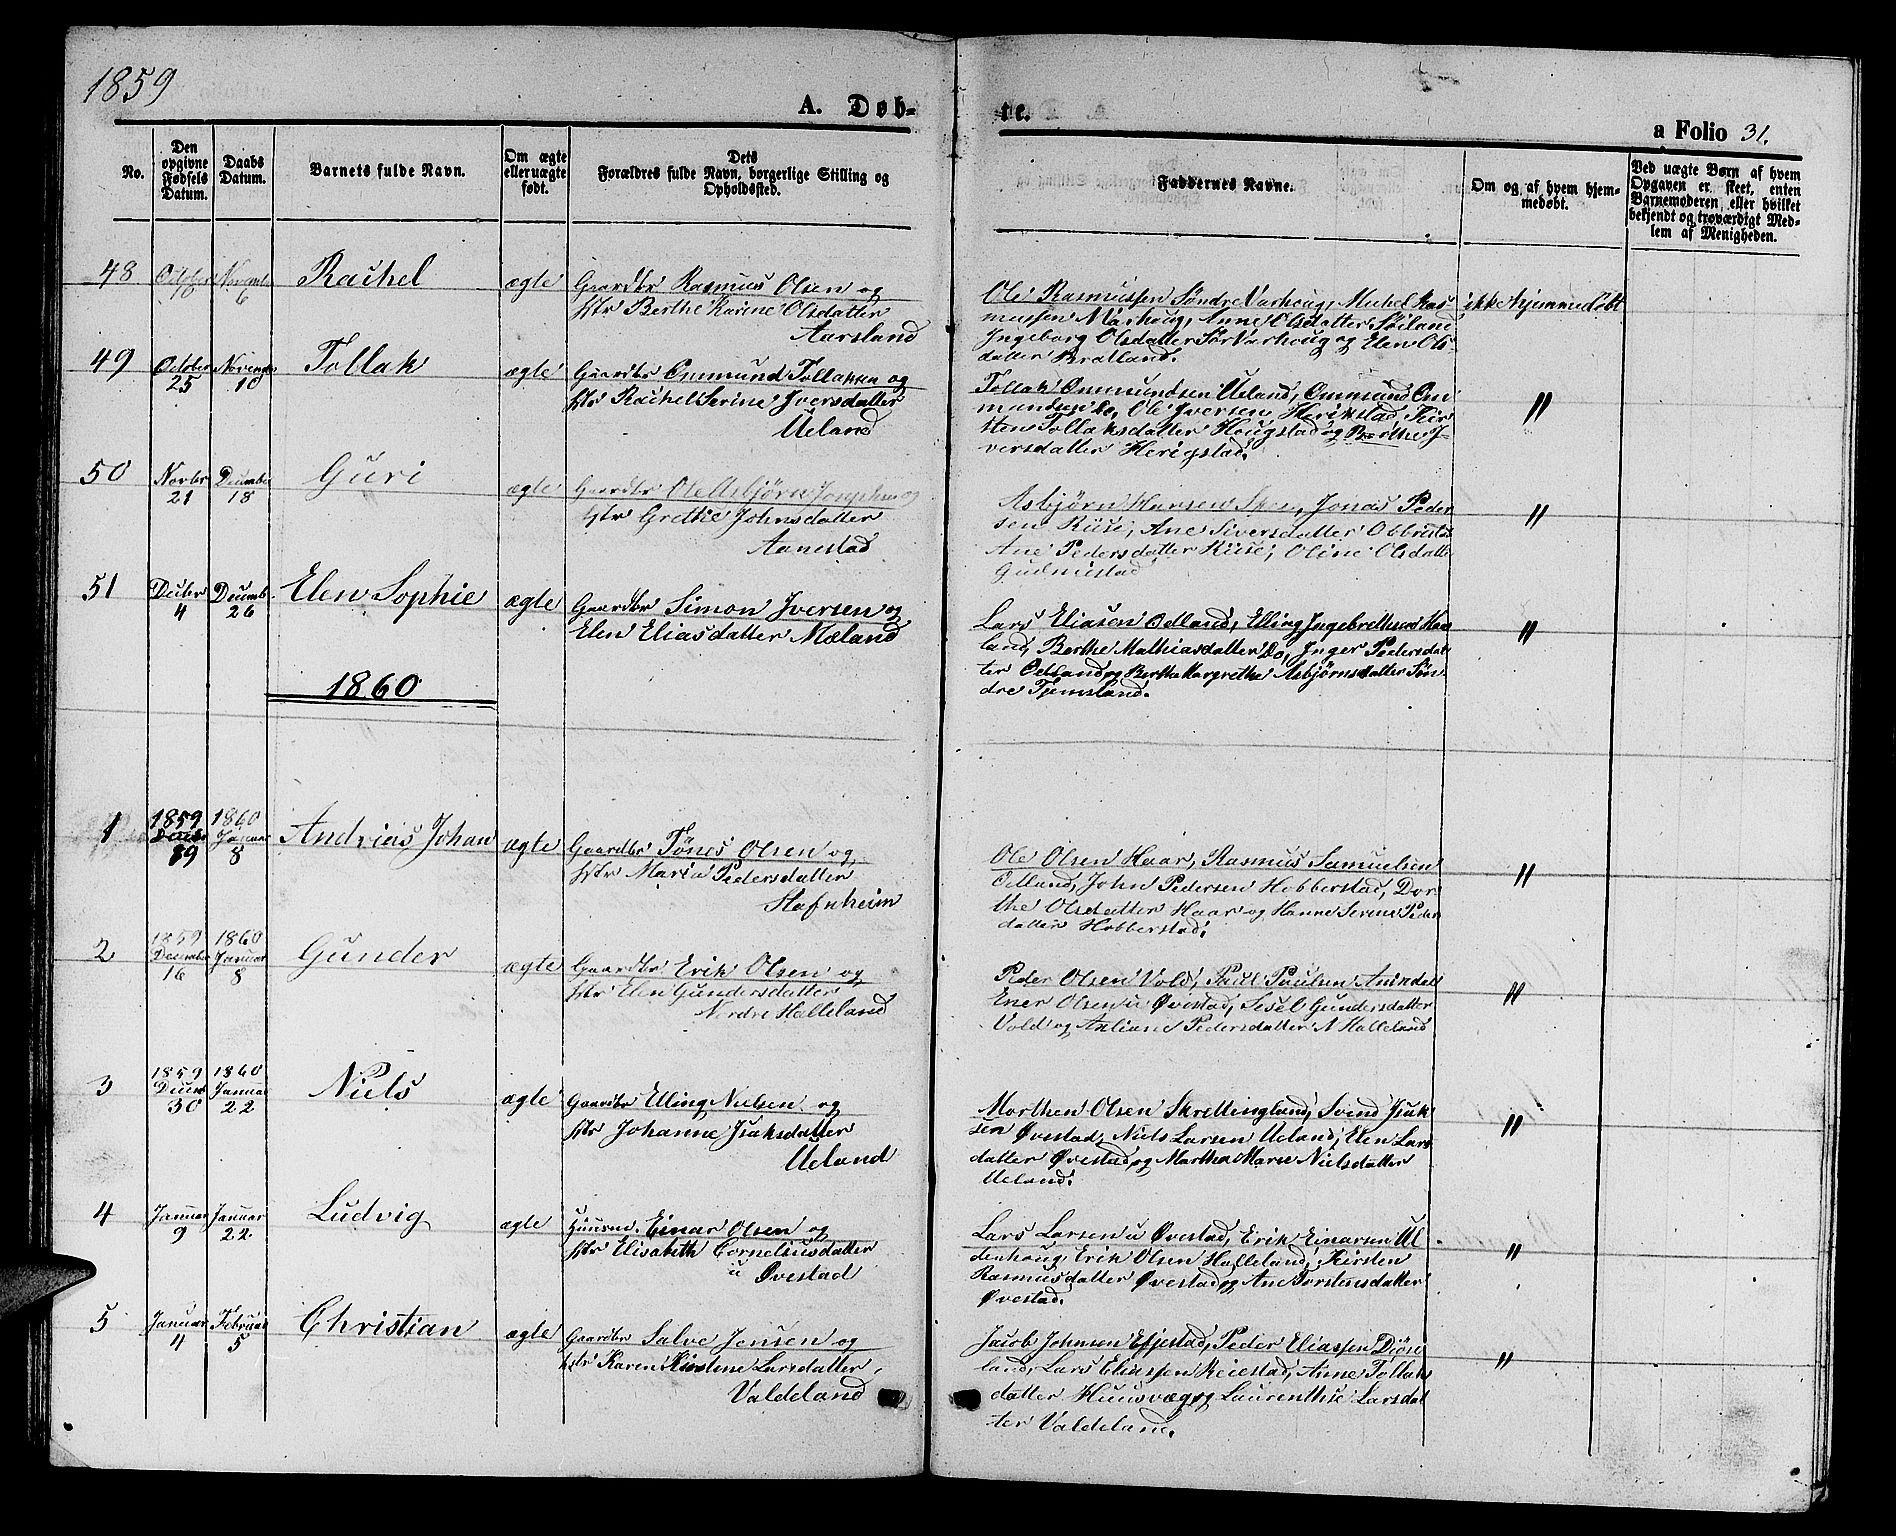 1859
A. Døb-
te.
a Folio 31.
No.
Den opgivne Fødsels Datum.
Daabs Datum.
Barnets fulde Navn.
Om ægte eller uægte født.
Dets Forældres fulde Navn, borgerlige Stilling og Opholdssted.
Faddernes Navne.
Om og af hvem hjemmedøbt.
Ved uægte Børn af hvem Opgaven er skeet, enten Barnemoderen, eller hvilket bekjendt og troværdigt Medlem af Menigheden.
48 October 16 Novemb 6 Rachel ægte Gaardbr Rasmus Olsen og
Hstr Berthe Karine Olsdatter
Aarsland
Ole Rasmussen Søndre Varhoug, Michel Ras-
mussen Varhoug, Anne Olsdatter Søiland
Ingeborg Olsdatter Sør Varhoug og Elen Ols-
datter Bratland.
ikke hjemmedøbt
49 October 25 Novembr 10 Tollak ægte Gaardbr Ommund Tollaksen og
Hstr Rachel Serine Iversdatter
Ueland
Tollak Ommundsen Ueland, Ommund Om-
mundsen Do, Ole Iversen Herikstad, Kir-
sten Tollaksdatter Hougstad og Berthe I-
versdatter Herigstad.
"
50 Novbr 21 December 18 Guri ægte Gaardbr Ole Asbjørn Josephsen og
Hstr Grethe Johnsdatter
Aanestad
Asbjørn Hansen Skra, Jonas Peder-
sen Riise, Ane Siversdatter Obbrestad
Ane Pedersdatter Riise, Oline Olsdatter
Gudmestad
"
51 Decbr 4 Decemb. 26 Elen Sophie ægte Gaardbr Simon Iversen og
Elen Eliasdatter Mæland
Lars Eliasen Odland, Elling Ingebrethsen Hau-
land, Berthe Mathiasdatter Do, Inger Pedersdat-
ter Odland og Berthe Margrethe Asbjørnsdatter Søn-
dre Tjemsland.
"
1860
1 1859 Decbr 29 1860 Januar 8 Andrias Johan ægte Gaardbr Tønes Olsen og
Hstr Maria Pedersdatter
Stafnheim
Ole Olsen Haar, Rasmus Samuelsen
Odland, John Pedersen Hobberstad, Dor-
the Olsdatter Haar og Hanne Serene Peder
datter Hobberstad.
"
2 1859 December 16 1860 Januar 8 Gunder ægte Gaardbr Erik Olsen og
Hstr Elen Gundersdatter
Nordre Halleland
Peder Olsen Vold, Paul Paulsen Anindal
Ener Olsen u Øvestad, Sesel Gundersdatter
Vold og Anliane Pedersdatter N Halleland
"
3 1859 Decemb 30 1860 Januar 22 Niels ægte Gaardbr Elling Nielsen og
Hstr Johanne Isaksdatter
Ueland
Morthen Olsen Skrettingland, Svend Isak-
sen Øvestad, Niels Larsen Ueland, Elen Lars
datter Øvestad og Martha Marie Nielsdatter
Ueland.
"
4 Januar 9 Januar 22 Ludvig ægte Huusm. Einar Olsen og
Hstr Elisabeth Corneliusdatter
u Øvestad
Lars Larsen u Øvestad, Erik Einarsen Ul-
denhoug, Erik Olsen Halleland, Kirsten
Rasmusdatter Øvestad og Ane Torstensdatter
Øvestad.
"
5 Januar 4 Februar 5 Christian ægte Gaardbr Salve Jensen og
Hstr Karen Kirstine Larsdatter
Valdeland
Jacob Johnsen Efjestad, Peder Eliassen Diøse-
land, Lars Eliassen Reiestad, Anne Tollaks
datter Huusvæg og Laurenthse Larsdat
ter Valdeland.
"